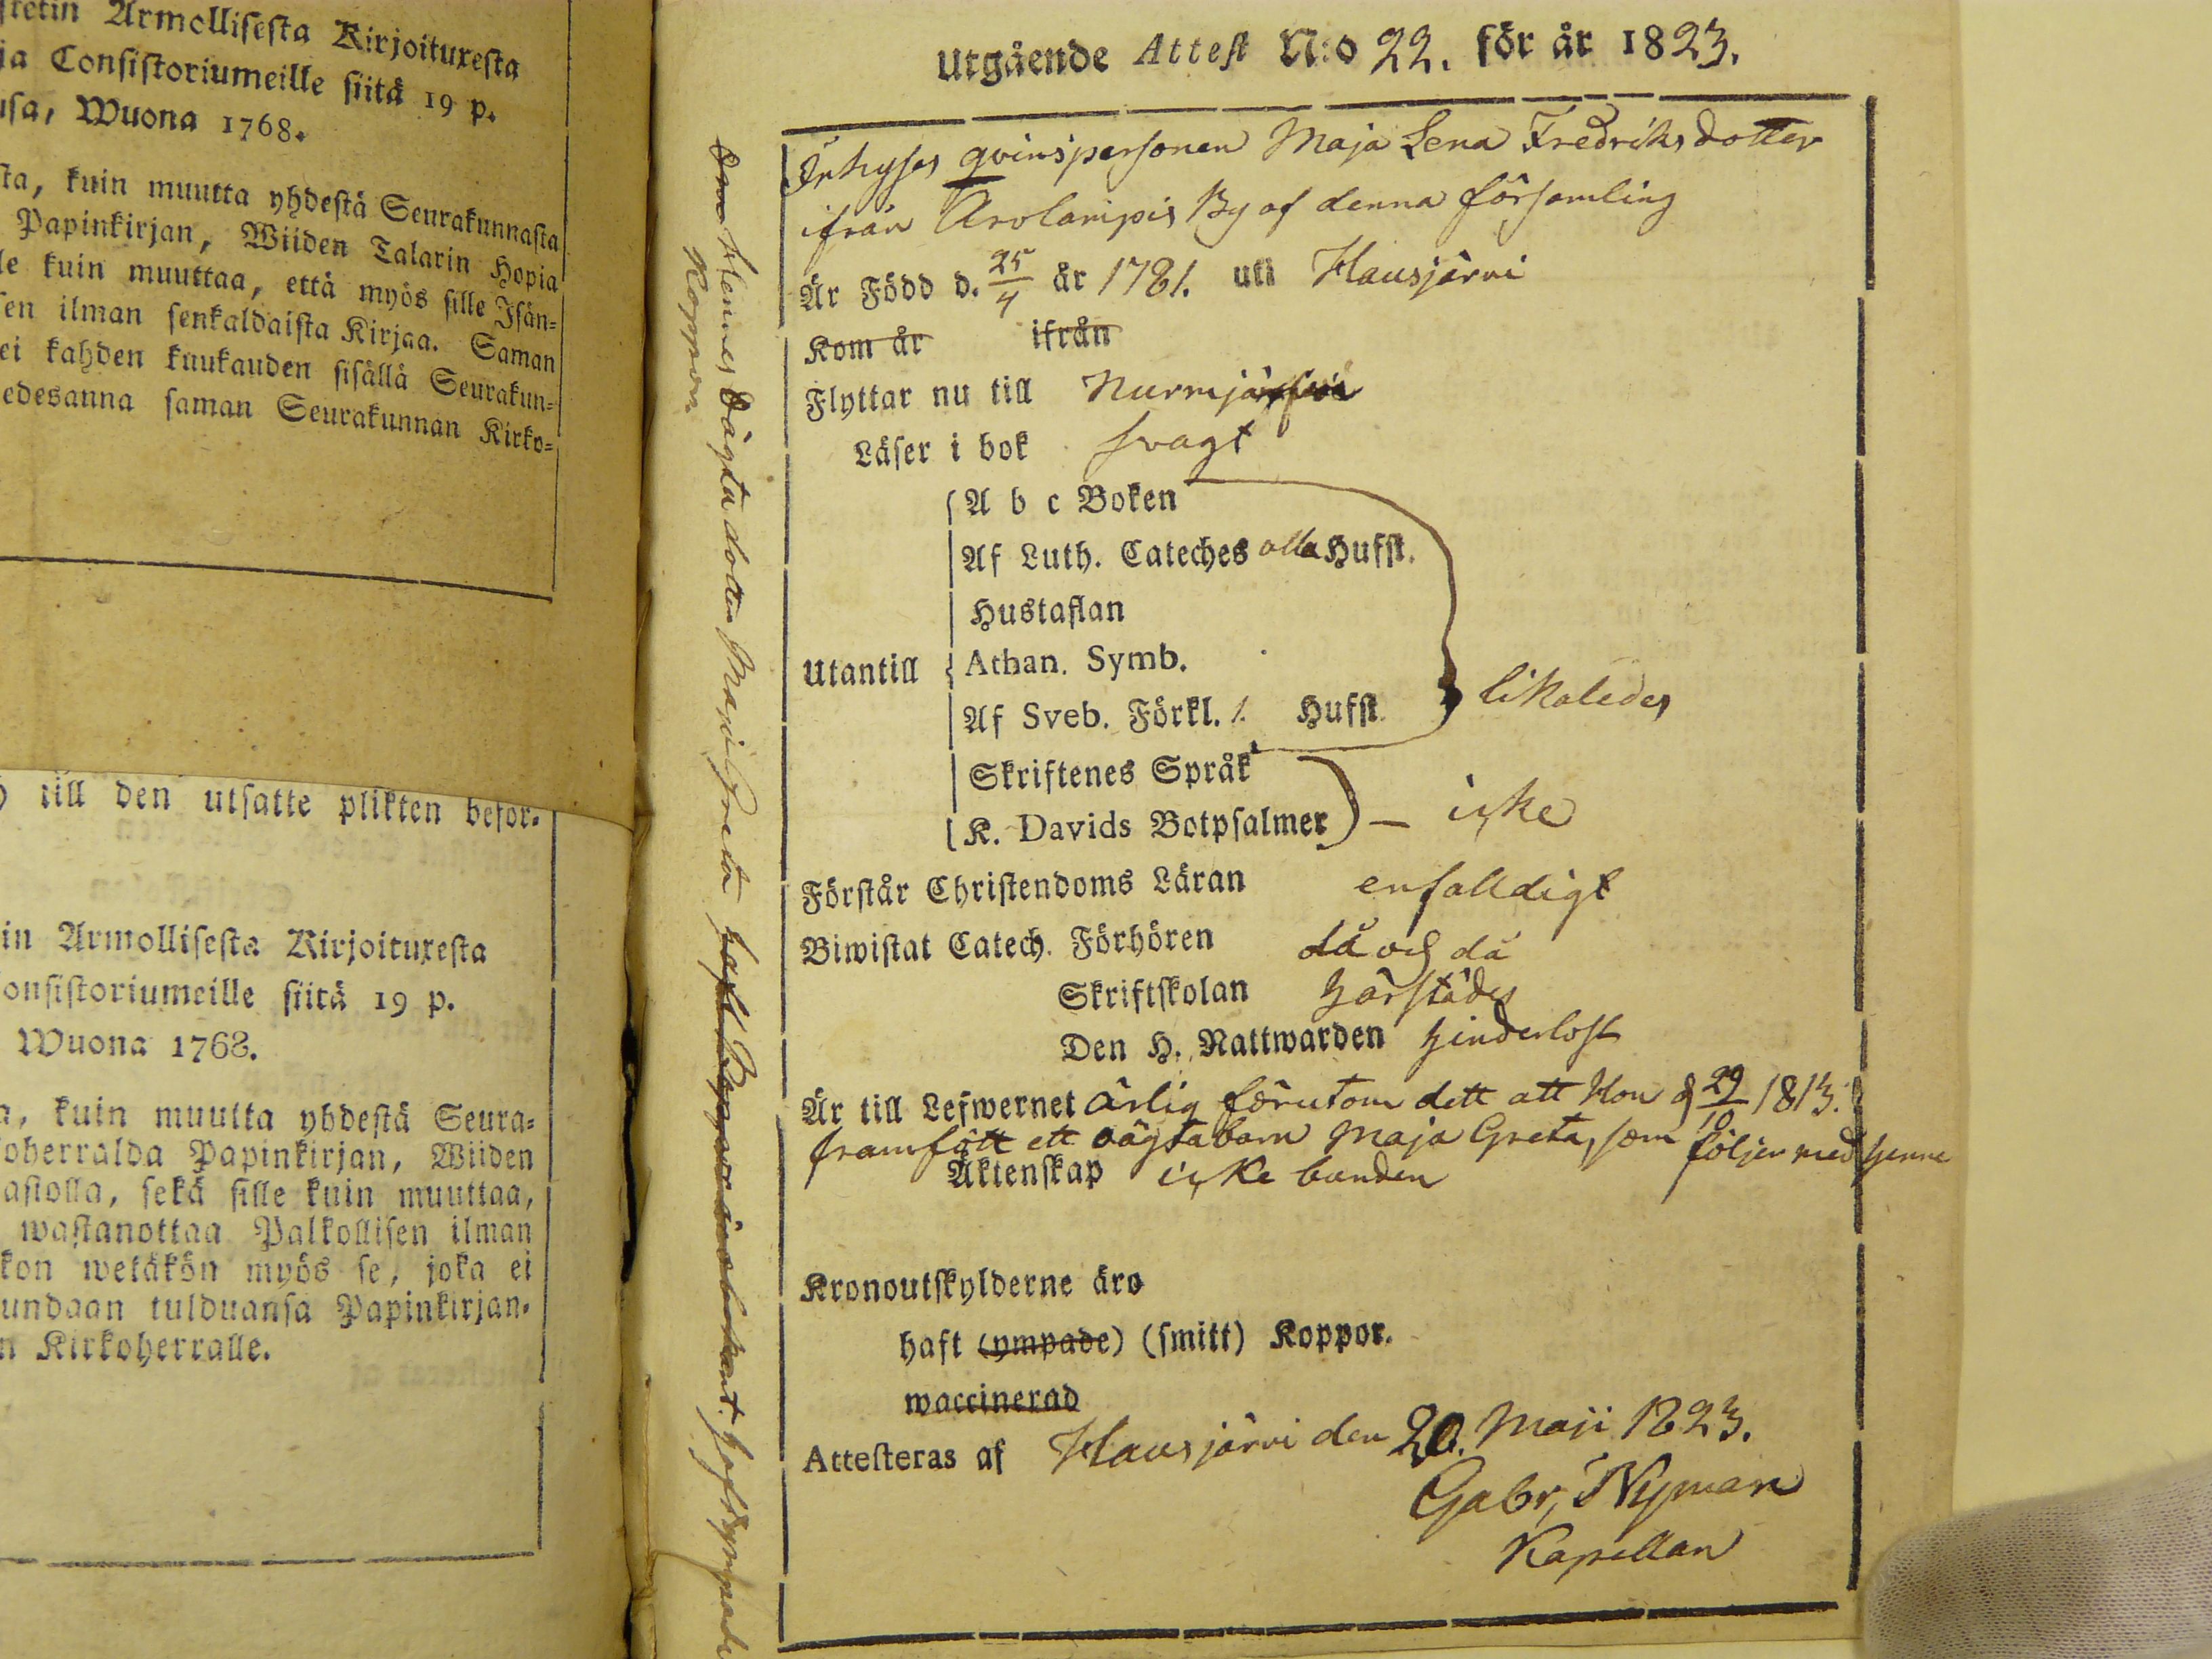 stetin Armollisesta Kirjoituxesta
ja Consistoriumeille siitä 19 p.
usa, Wuona 1768.
sta, kuin muutta yhdestä Seurakunnasta
Papinkirjan, Wiiden Talarin Hopia
le kuin muuttaa, että myös sille Isän-
sen ilman senkaldaista Kirjaa. Saman
ei kahden kuukauden sisällä Seurakun-
edesanna saman Seurakunnan Kirko-
till den utsatte plikten befor-
in Armollisesta Kirjoituxesta
onsistoriumeille siitä 19 p.
Wuona 1768.
a, kuin muutta yhdestä Seura-
oherralda Papinkirjan, Wiiden
astolla, sekä sille kuin muuttaa,
wastanottaa Palkollisen ilman
kon wetäkön myös se, joka ei
undaan tulduansa Papinkirjan-
n Kirkoherralle.
Utgående Attest N:o 22. för år 1823.
Inhyses qvinspersonen Maja Lena Fredriksdotter
ifrån Arolampis By af denna församling
Är Född d. 25/4 år 1781. uti Hausjärvi
Kom år ifrån
Flyttar nu till Nurmijärvi
Läser i bok svagt
A b c Boken
Af Luth. Cateches alla Hufst.
Hustaflan
Utantill Athan. Symb.
Af Sveb. Förkl. 1. Hufst. likaledes
Skriftenes Språk
K. Davids Botpsalmer — icke
Förstår Christendoms Läran enfalldigt
Biwistat Catech. Förhören då och då
Skriftskolan härstädes
Den H. Nattwarden hinderlost
Är till Lefwernet ärlig förutom dett att Hon d 29/10 1813.
framfött ett oägta barn Maja Greta, som följer med henne
Äktenskap icke bunden
Kronoutskylderne äro
haft (ympade) (smitt) Koppor.
waccinerad
Attesteras af Hausjärvi den 20. Maji 1823.
Gabr. Nyman
Kapellan
Om Hennes oägta dotter Maja Greta haft Koppor är obekant. haft ympade
Koppor.